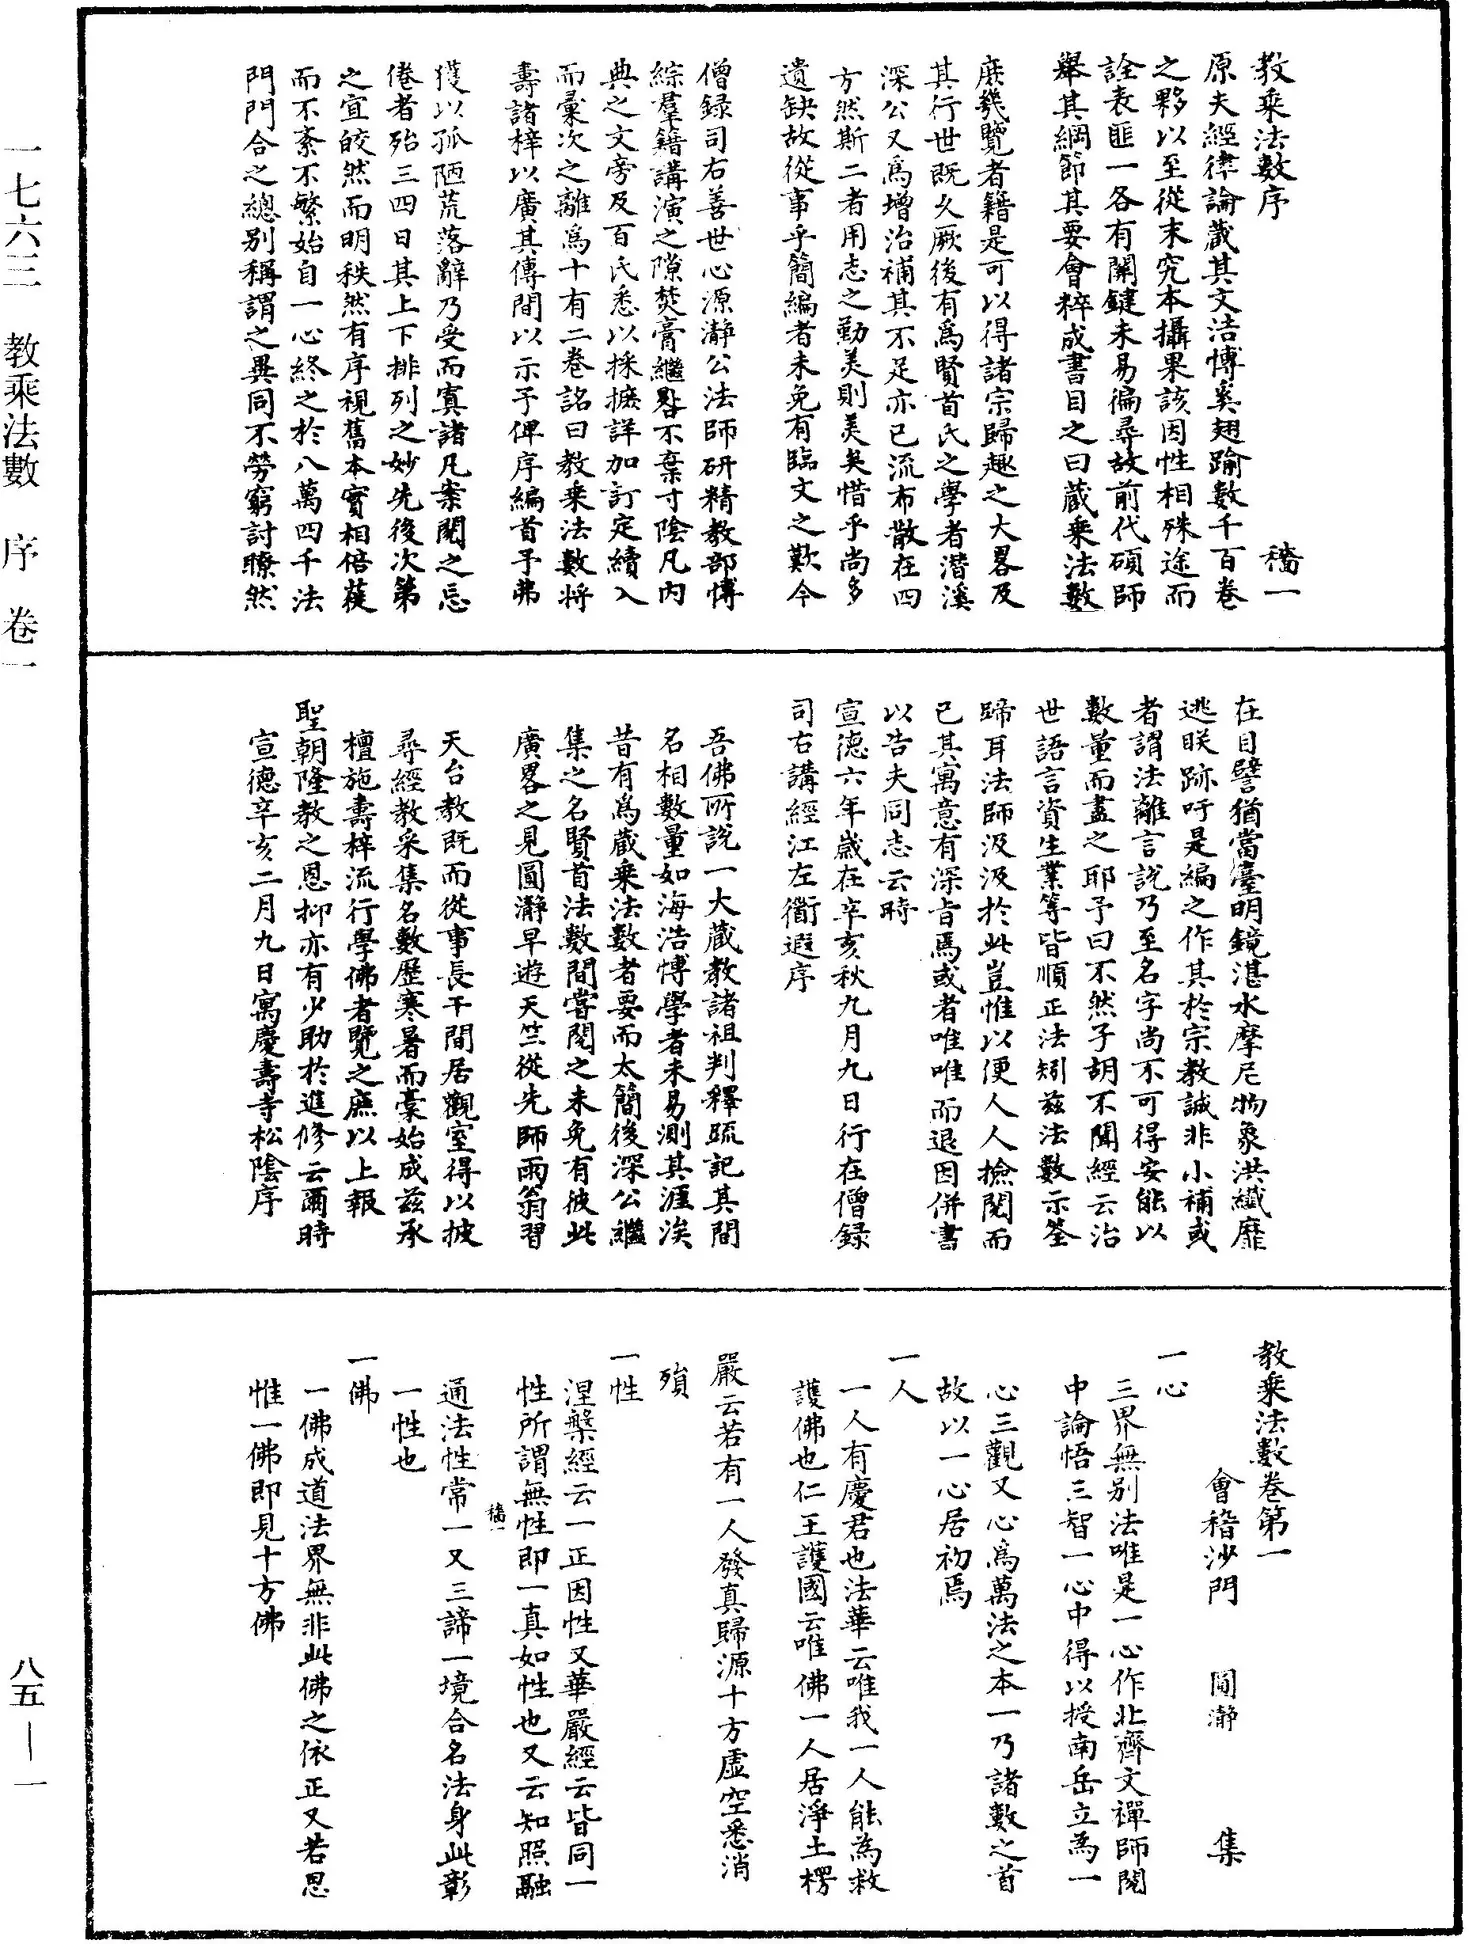 教乘法數序　穡一
原夫經律論藏其文浩博奚翅踰數千百卷
之夥以至從末究本攝果該因性相殊途而
詮表匪一各有關鍵未易徧尋故前代碩師
舉其綱節其要會粹成書目之曰藏乘法數
庶幾覽者籍是可以得諸宗歸趣之大畧及
其行世既久厥後有爲賢首氏之學者潛溪
深公又爲增治補其不足亦已流布散在四
方然斯二者用志之勤美則美矣惜乎尚多
遺缺故從事乎簡編者未免有臨文之歎今
僧録司右善世心源瀞公法師研精教部博
綜羣籍講演之隙焚膏繼晷不棄寸陰凡内
典之文旁及百氏悉以採摭詳加訂定續入
而彙次之離爲十有二卷詺曰教乘法數將
壽諸梓以廣其傳間以示予俾序編首予弗
獲以孤陋荒落辭乃受而寘諸凡案閱之忘
倦者殆三四日其上下排列之妙先後次第
之宜皎然而明秩然有序視舊本實相倍蓰
而不紊不繁始自一心終之於八萬四千法
門門合之總別稱謂之異同不勞窮討瞭然
在目譬猶當臺明鏡湛水摩尼物象洪纖靡
逃眹跡吁是編之作其於宗教誠非小補或
者謂法離言說乃至名字尚不可得安能以
數量而盡之耶予曰不然子胡不聞經云治
世語言資生業等皆順正法矧茲法數示筌
蹄耳法師汲汲於此豈惟以便人人檢閱而
已其寓意有深旨焉或者唯唯而退因併書
以告夫同志云時
宣德六年歲在辛亥秋九月九日行在僧録
司右講經江左衜遐序
吾佛所說一大藏教諸祖判釋疏記其間
名相數量如海浩博學者未易測其涯涘
昔有爲藏乘法數者要而太簡後深公繼
集之名賢首法數間嘗閱之未免有彼此
廣畧之見圓瀞早遊天竺從先師雨翁習
天台教既而從事長干間居觀室得以披
尋經教采集名數歷寒暑而藁始成茲承
檀施壽梓流行學佛者覽之庶以上報
聖朝隆教之恩抑亦有少助於進修云爾時
宣德辛亥二月九日寓慶壽寺松陰序
教乘法數卷第一
會稽沙門　圓瀞　集
一心
三界無別法唯是一心作北齊文禪師閱
中論悟三智一心中得以授南岳立為一
心三觀又心爲萬法之本一乃諸數之首
故以一心居初焉
一人
一人有慶君也法華云唯我一人能為救
護佛也仁王護國云唯佛一人居淨土楞
嚴云若有一人發真歸源十方虛空悉消
殞
一性
涅槃經云一正因性又華嚴經云皆同一
性所謂無性即一真如性也又云知照融
穡一
通法性常一又三諦一境合名法身此彰
一性也
一佛
一佛成道法界無非此佛之依正又若思
惟一佛即見十方佛
一七六三　教乘法數　序　卷一
八五—一